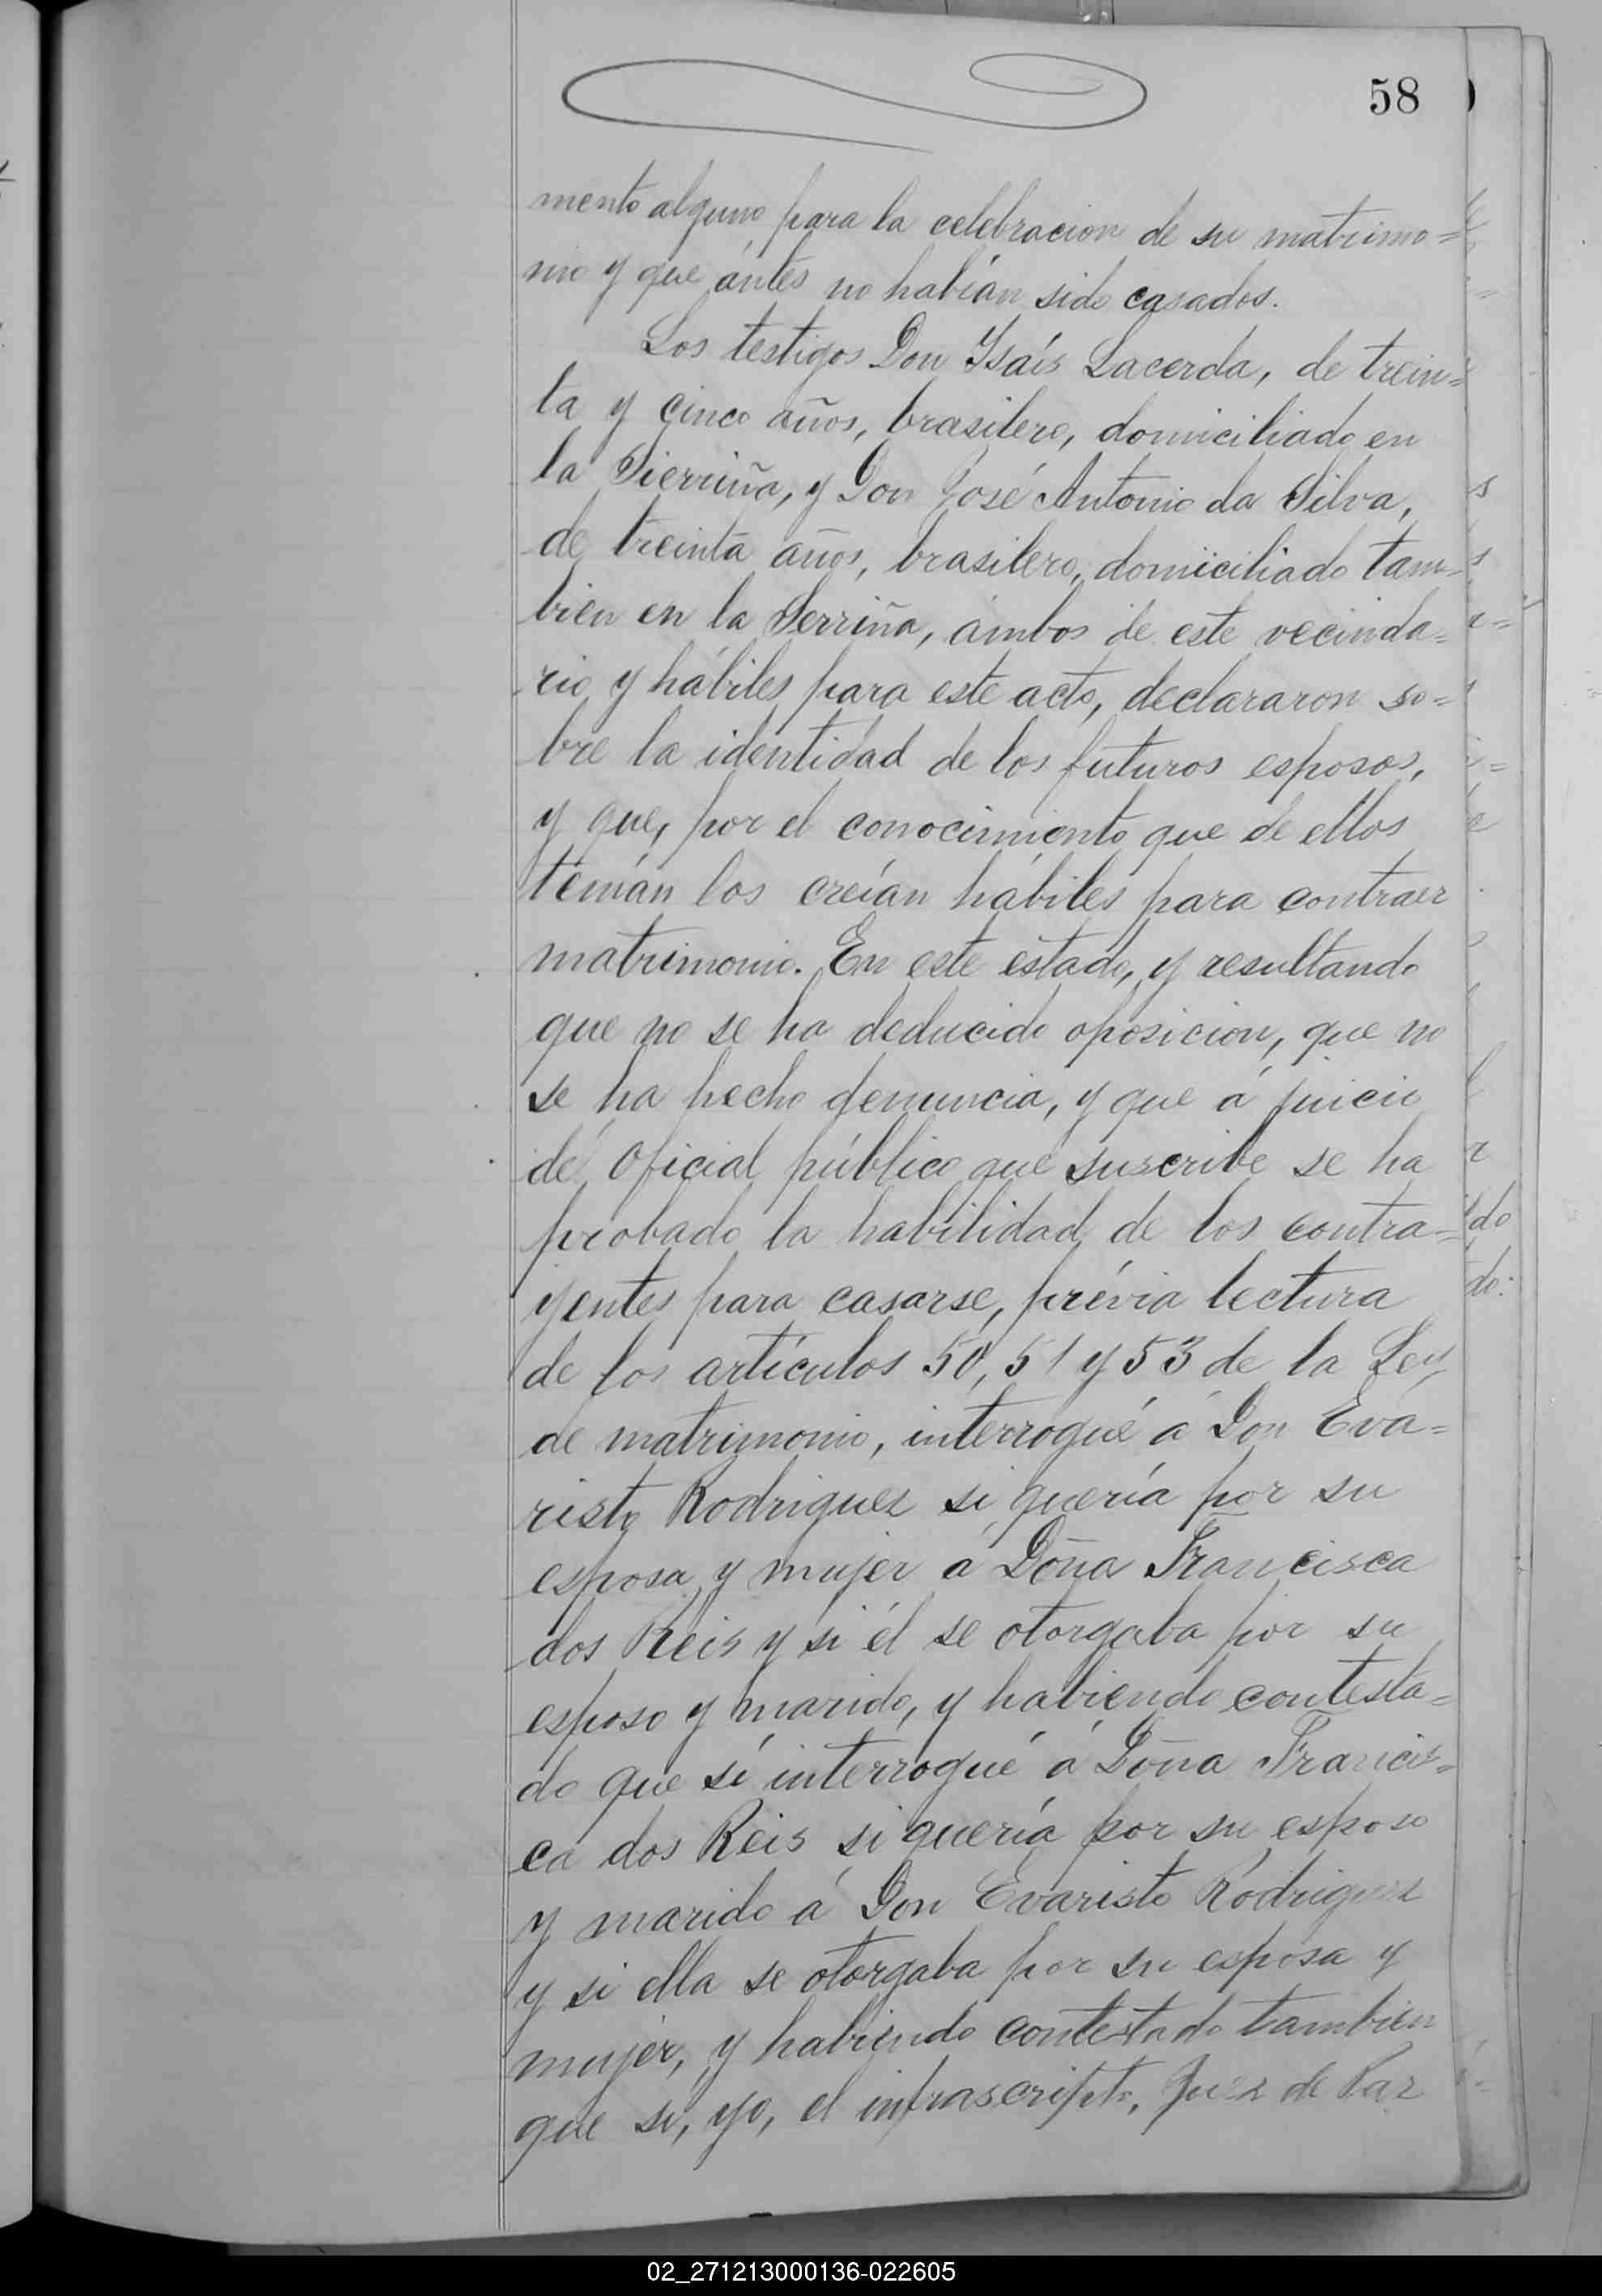 58
mento alguno para la celebracion de su matrimo=
nio y que ántes no habían sido casados.
Los testigos Don Ysaís Lacerda, de trein=
ta y cinco años, brasilero, domiciliado en
la Sierriña, y Don José Antonio da Silva,
de treinta años, brasilero, domiciliado tam=
bien en la Serriña, ámbos de este vecinda=
rio y hábiles para este acto, declararon so=
bre la identidad de los futuros esposos,
y que, por el conocimiento que de ellos
tenían los creían hábiles para contraer
matrimonio. En este estado, y resultando
que no se ha deducido oposicion, que no
se ha hecho denuncia, y que á juicio
del Oficial público que suscribe se ha
probado la habilidad de los contra=
yentes para casarse, prévia lectura
de los artículos 50, 51 y 53 de la Ley
de matrimonio, interrogué á Don Eva=
risto Rodriguez si quería por su
esposa y mujer á Doña Francisca
dos Reis y si él se otorgaba por su
esposo y marido, y habiendo contesta=
do que sí interrogué á Doña Francis=
ca dos Reis si quería por su esposo
y marido á Don Evaristo Rodriguez
y si ella se otorgaba por su esposa y
mujer, y habiendo contestado tambien
que si, yo, el infrascripto, Juez de Paz
02_271213000136-022605